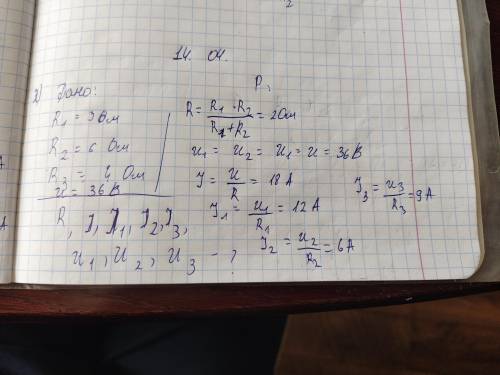 14. 04.
2) Дано:
R₁ = 3 Ом
R₂ = 6 Ом
R₃ = 4 Ом
U = 36 В
R, I, I₁, I₂, I₃,
U₁, U₂, U₃ - ?
R = R₁ · R₂ / R₁ + R₂ = 2 Ом
U₁ = U₂ = U₁ = U = 36 В
I = U / R = 18 А
I₁ = U₁ / R₁ = 12 А
I₂ = U₂ / R₂ = 6 А
I₃ = U₃ / R₃ = 9 А